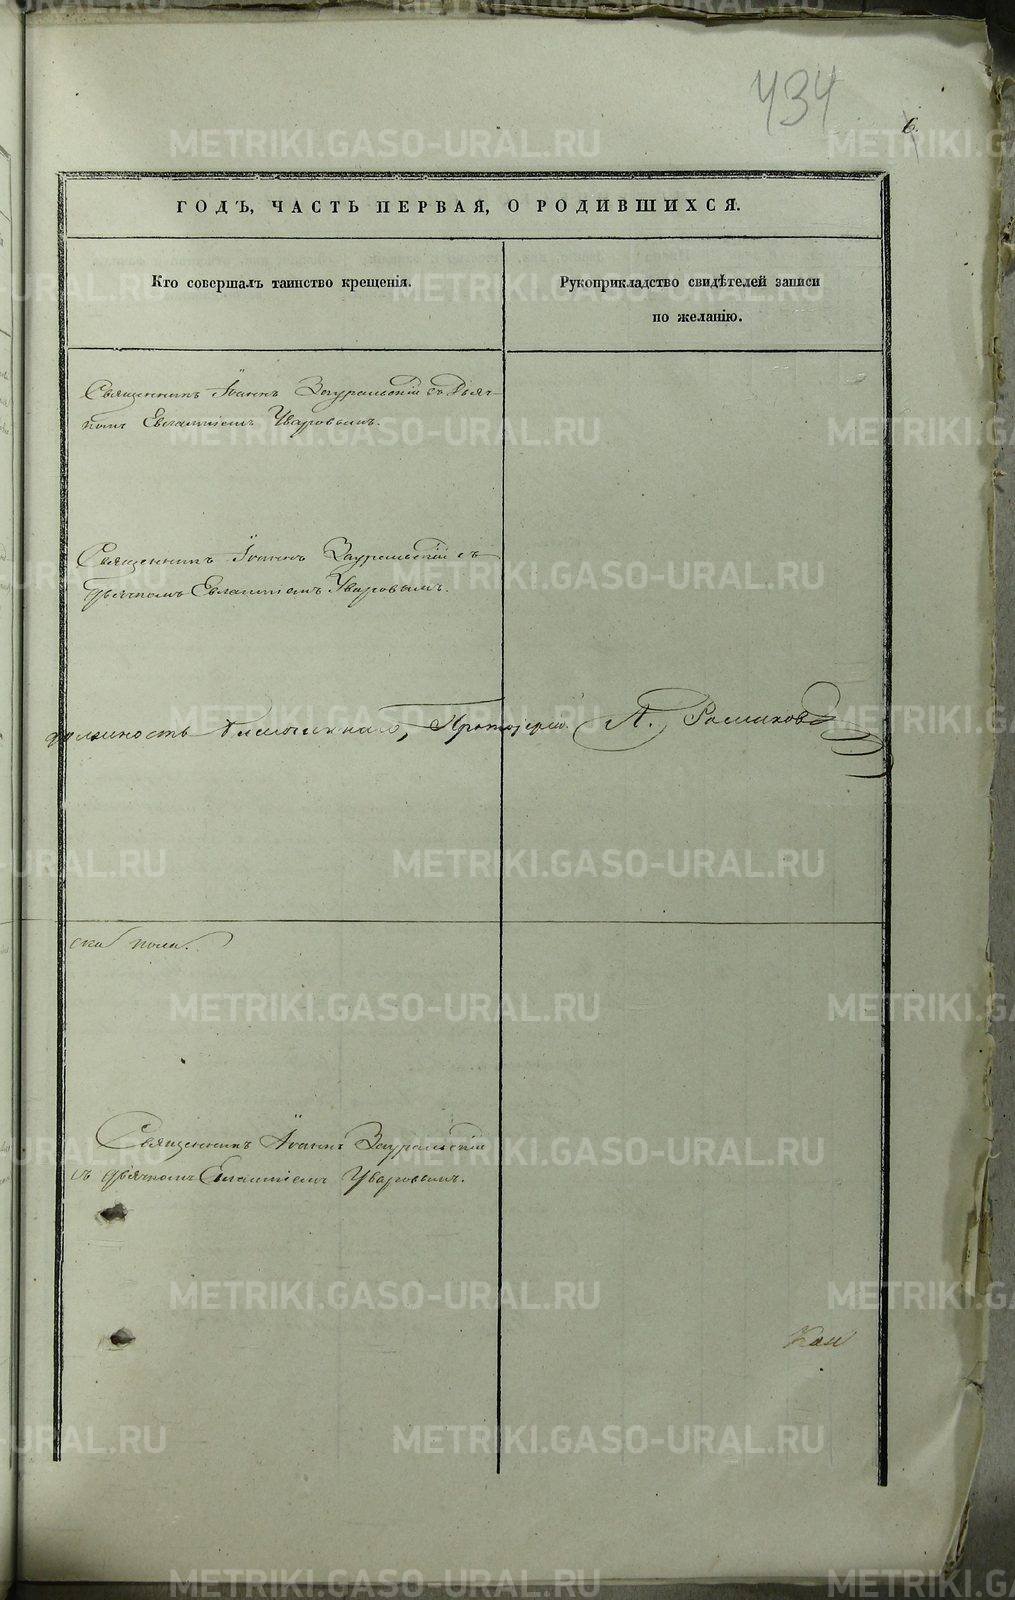 434
6.
ГОДЪ, ЧАСТЬ ПЕРВАЯ, О РОДИВШИХСЯ.
Кто совершалъ таинство крещенія.
Рукоприкладство свидѣтелей записи
по желанію.
Священникъ Іоаннъ Зауральскій съ Дьяч-
комъ Евлампіемъ Уваровымъ.
Священникъ Іоаннъ Зауральскій съ
дьячкомъ Евлампіемъ Уваровымъ.
должность Благочиннаго, Протоіерей А.
ска пола.
Священникъ Іоаннъ Зауральскій
съ дьячкомъ Евлампіемъ Уваровымъ.
METRIKI.GASO-URAL.RU